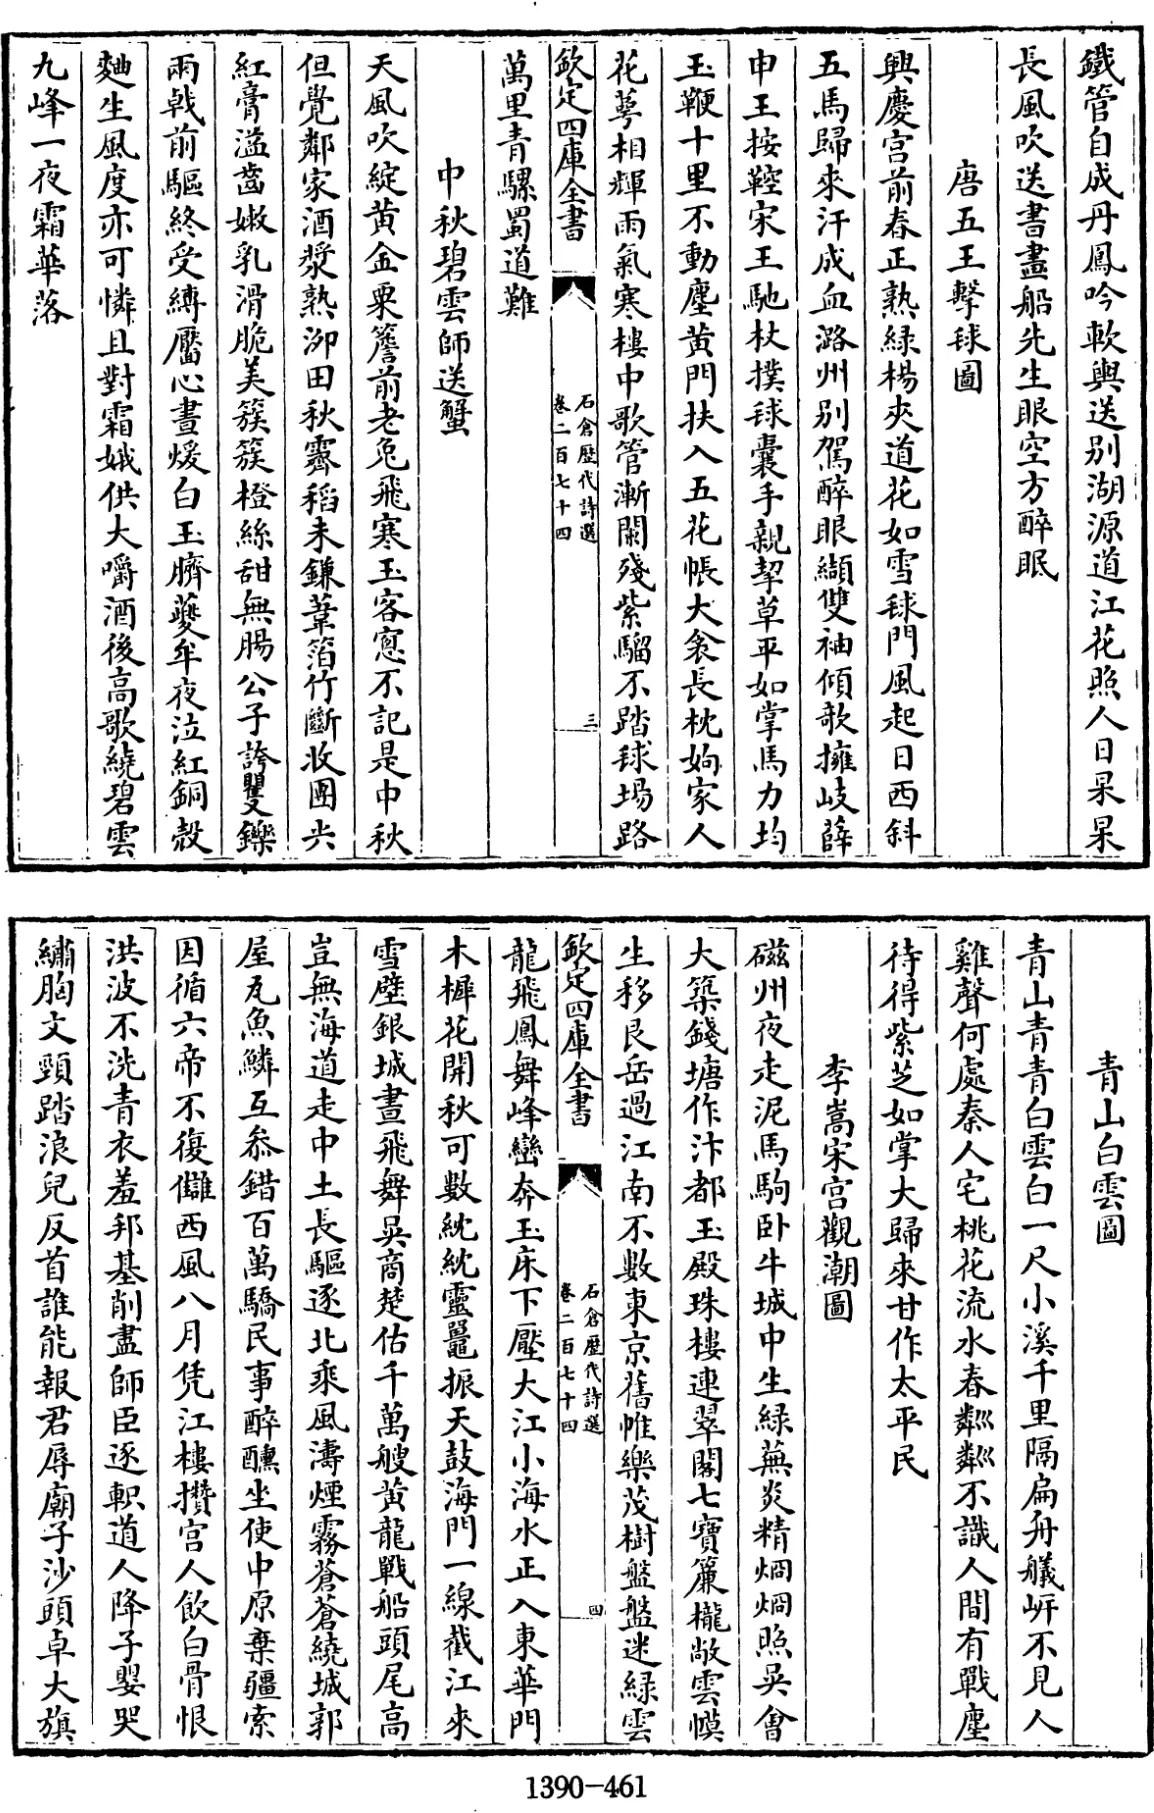 鐵管自成丹鳳吟軟輿送别湖源道江花照人日杲杲
長風吹送書畫船先生眼空方醉眠
唐五王擊毬圖
興慶宫前春正熟緑楊夾道花如雪毬門風起日西斜
五馬歸來汗成血潞州别駕醉眼纈雙袖傾欹擁岐薛
申王按鞚宋王馳杖撲毬囊手親挈草平如掌馬力均
玉鞭十里不動塵黄門扶入五花帳大衾長枕姁家人
花萼相輝雨氣寒樓中歌管漸闌殘紫騮不踏毬場路
欽定四庫全書
石倉歷代詩選
卷二百七十四
三
萬里青騾蜀道難
中秋碧雲師送蟹
天風吹綻黄金粟簷前老兎飛寒玉客窻不記是中秋
但覺鄰家酒漿熟泖田秋霽稻未鐮葦箔竹斷收團尖
紅膏溢齒嫩乳滑脆美簇簇橙絲甜無腸公子誇矍鑠
兩戟前驅終受縛厴心晝煖白玉臍䕫牟夜泣紅銅殻
麯生風度亦可憐且對霜娥供大嚼酒後高歌繞碧雲
九峰一夜霜華落
青山白雲圖
青山青青白雲白一尺小溪千里隔扁舟艤㟁不見人
雞聲何處秦人宅桃花流水春粼粼不識人間有戰塵
待得紫芝如掌大歸來甘作太平民
李嵩宋宫觀潮圖
磁州夜走泥馬駒卧牛城中生緑蕪炎精炯炯照吴會
大築錢塘作汴都玉殿珠樓連翠閣七寶簾櫳敞雲幙
生移艮岳過江南不數東京舊帷樂茂樹盤盤迷緑雲
欽定四庫全書
石倉歷代詩選
卷二百七十四
四
龍飛鳳舞峰巒奔玉床下壓大江小海水正入東華門
木樨花開秋可數紞紞靈鼉振天鼓海門一線截江來
雪壁銀城晝飛舞吴商楚估千萬艘黄龍戰船頭尾高
豈無海道走中土長驅逐北乘風濤煙霧蒼蒼繞城郭
屋瓦魚鱗互叅錯百萬驕民事醉醺坐使中原棄疆索
因循六帝不復讎西風八月凭江樓攢宫人飲白骨恨
洪波不洗青衣羞邦基削盡師臣逐軹道人降子嬰哭
繡胸文頸踏浪兒反首誰能報君辱廟子沙頭卓大旗
1390-461